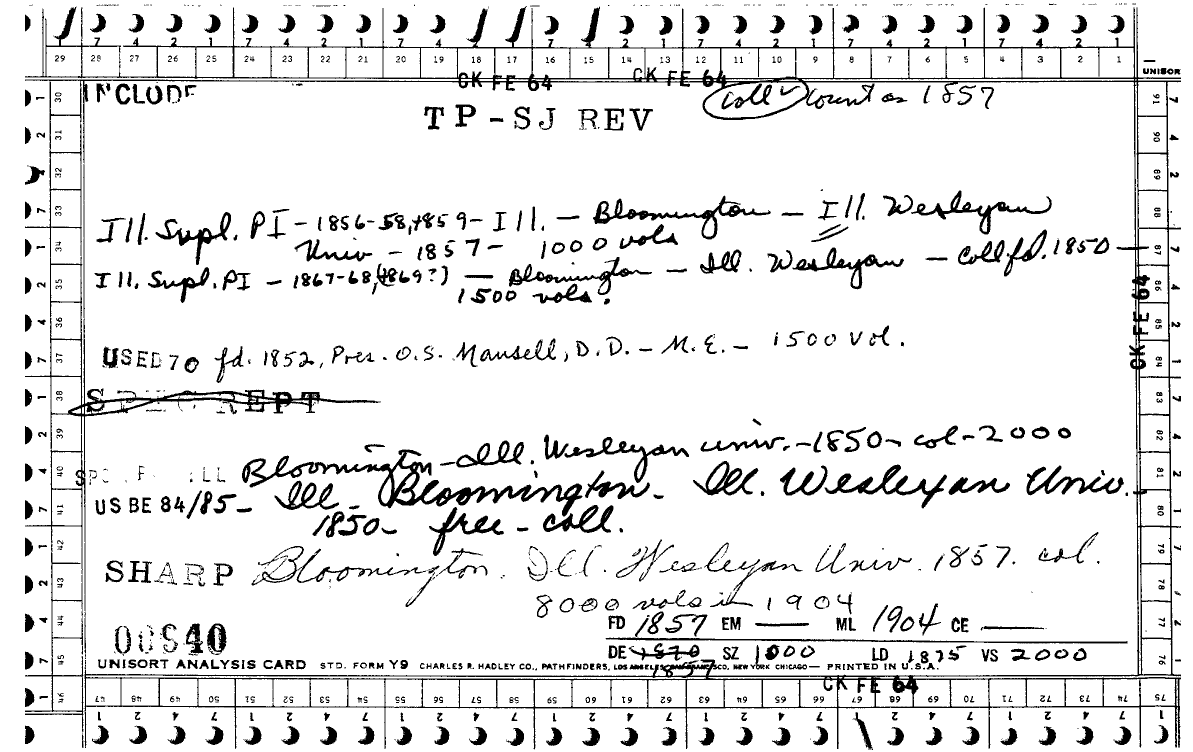 7 4 2 1 7 4 2 1 7 4 2 1 7 4 2 1 7 4 2 1 7 4 2 1 7 4 2 1
29 28 27 26 25 24 23 22 21 20 19 18 17 16 15 14 13 12 11 10 9 8 7 6 5 4 3 2 1
UNISORT
CK FE 64 CK FE 64
INCLUDE
coll ✓ count as 1857
TP-SJ REV
Ill. Supl. PI - 1856-58, +859 - Ill. - Bloomington - Ill. Wesleyan
Univ - 1857 - 1000 vols
Ill. Supl. PI - 1867-68, (+869?) - Bloomington - Ill. Wesleyan - Coll. fd. 1850 -
1500 vols.
CK FE 64
USED 70 fd. 1852, Pres. O.S. Mansell, D.D. - M.E. - 1500 vol.
SPEC REPT
Bloomington - Ill. Wesleyan univ. - 1850 - col - 2000
US BE 84/85 - Ill - Bloomington - Ill. Wesleyan Univ. -
1850 - free - coll.
SHARP Bloomington. Ill. Wesleyan Univ. 1857. col.
8000 vols in 1904
FD 1857 EM — ML 1904 CE —
00S40
DE 1870 SZ 1000 LD 1875 VS 2000
1857
UNISORT ANALYSIS CARD STD. FORM Y9 CHARLES R. HADLEY CO., PATHFINDERS, LOS ANGELES, SAN FRANCISCO, NEW YORK CHICAGO — PRINTED IN U.S.A.
CK FE 64
30 31 32 33 34 35 36 37 38 39 40 41 42 43 44 45 46
47 48 49 50 51 52 53 54 55 56 57 58 59 60 61 62 63 64 65 66 67 68 69 70 71 72 73 74 75
76 77 78 79 80 81 82 83 84 85 86 87 88 89 90 91